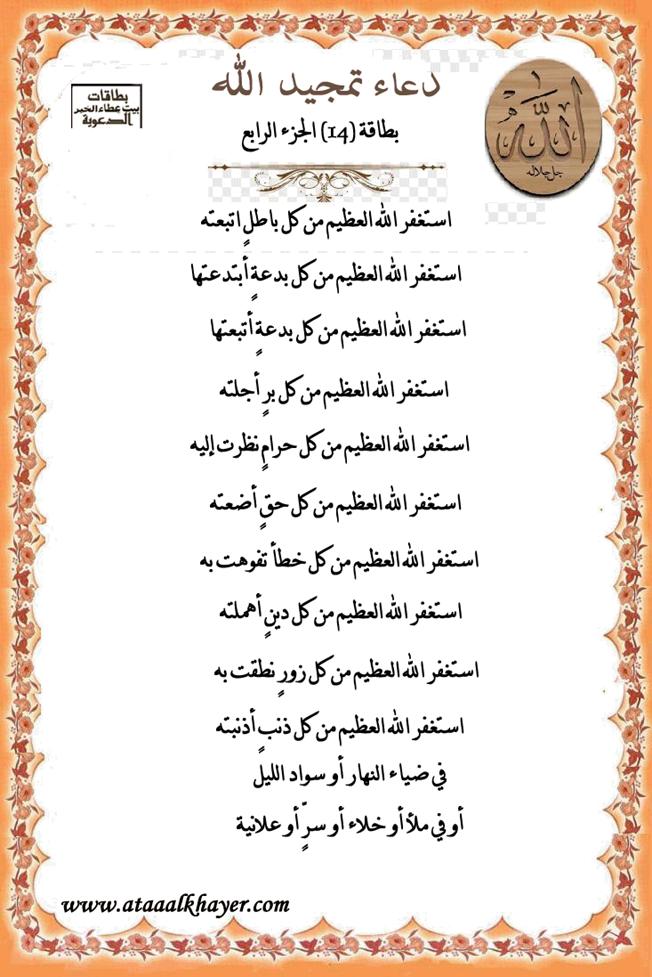 دعاء تمجيد الله
بطاقات
بيت عطاء الخير
الدعوية
الله
جل جلاله
بطاقة (14) الجزء الرابع
استغفر الله العظيم من كل باطلٍ اتبعته
استغفر الله العظيم من كل بدعةٍ أبتدعتها
استغفر الله العظيم من كل بدعةٍ أتبعتها
استغفر الله العظيم من كل برٍ أجلته
استغفر الله العظيم من كل حرامٍ نظرت إليه
استغفر الله العظيم من كل حقٍ أضعته
استغفر الله العظيم من كل خطأ تفوهت به
استغفر الله العظيم من كل دينٍ أهملته
استغفر الله العظيم من كل زورٍ نطقت به
استغفر الله العظيم من كل ذنبٍ أذنبته
في ضياء النهار أو سواد الليل
أو في ملأ أو خلاء أو سرٍّ أو علانية
www.ataaalkhayer.com